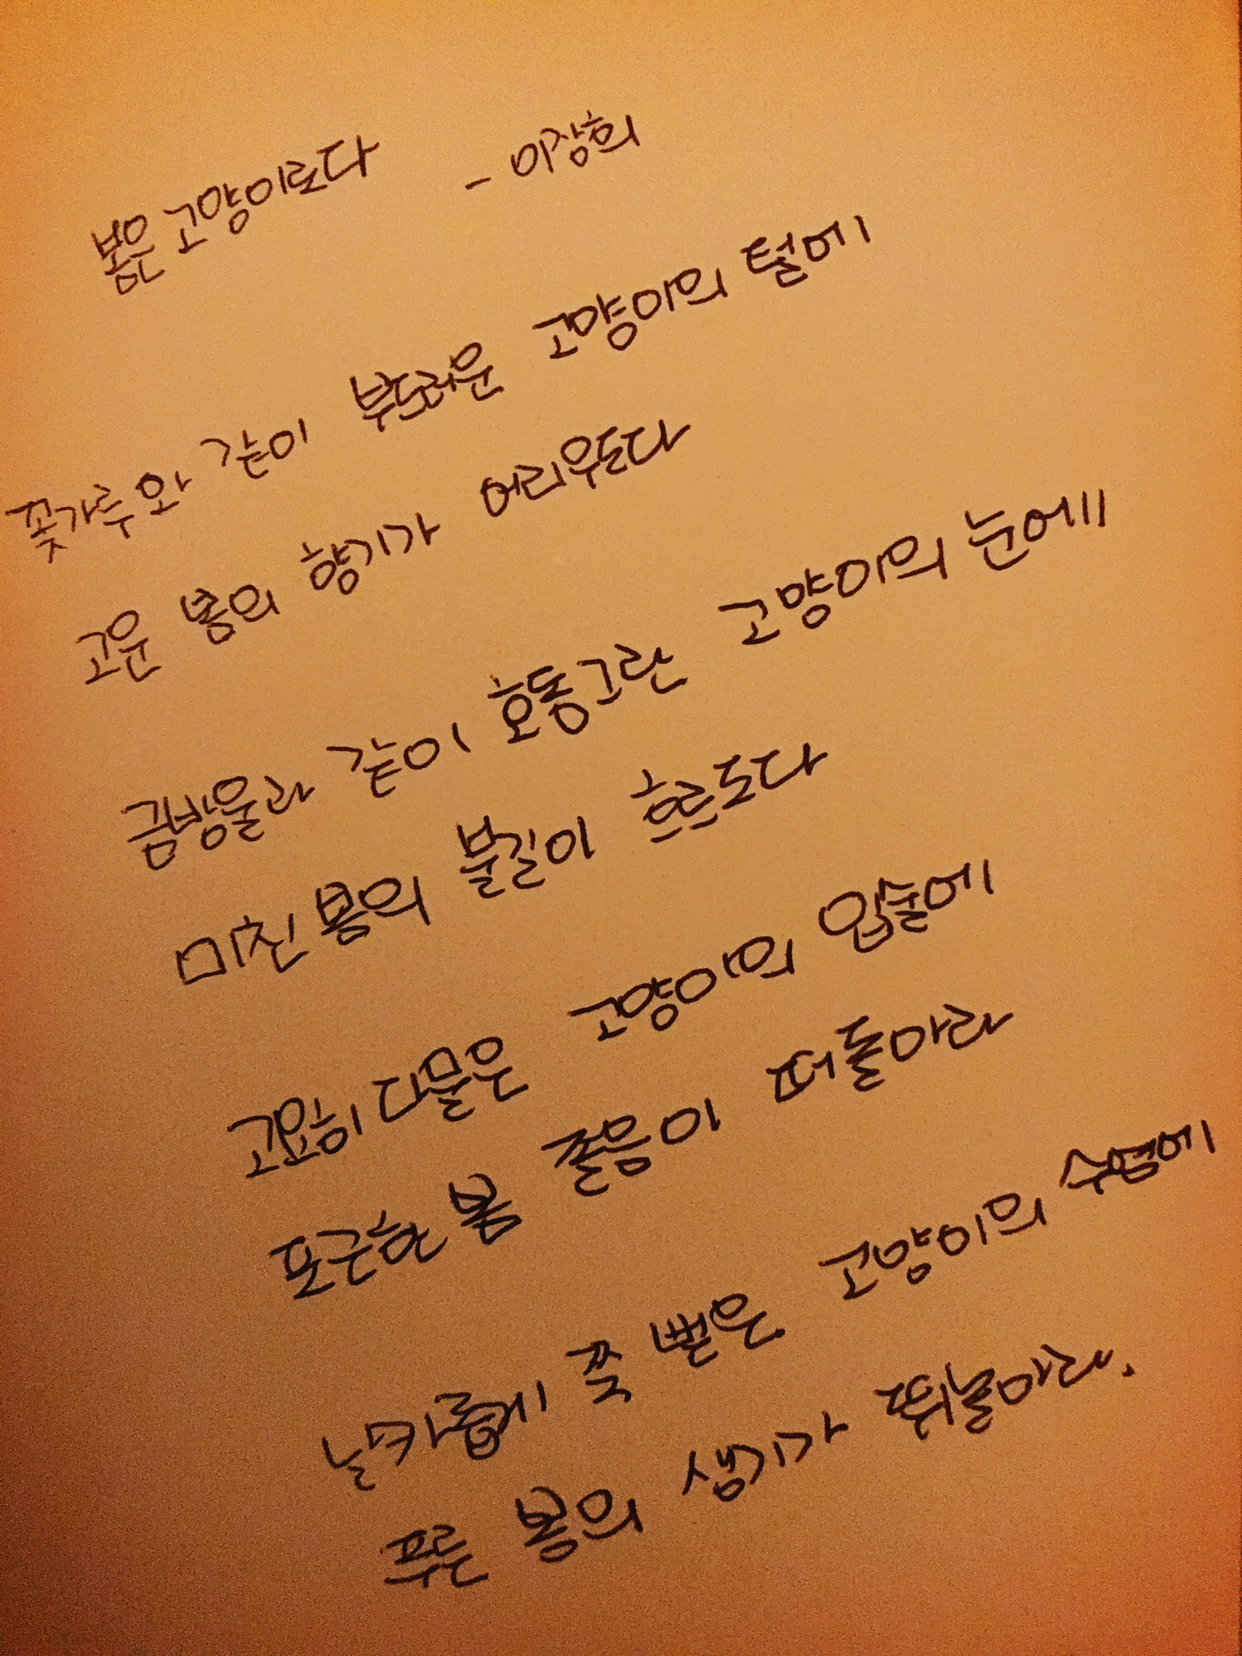 봄은 고양이로다 - 이장희
꽃가루와 같이 부드러운 고양이의 털에
고운 봄의 향기가 어리우도다
금방울과 같이 호동그란 고양이의 눈에
미친 봄의 불길이 흐르도다
고요히 다물은 고양이의 입술에
포근한 봄 졸음이 떠돌아라
날카롭게 쭉 뻗은 고양이의 수염에
푸른 봄의 생기가 뛰놀아라.